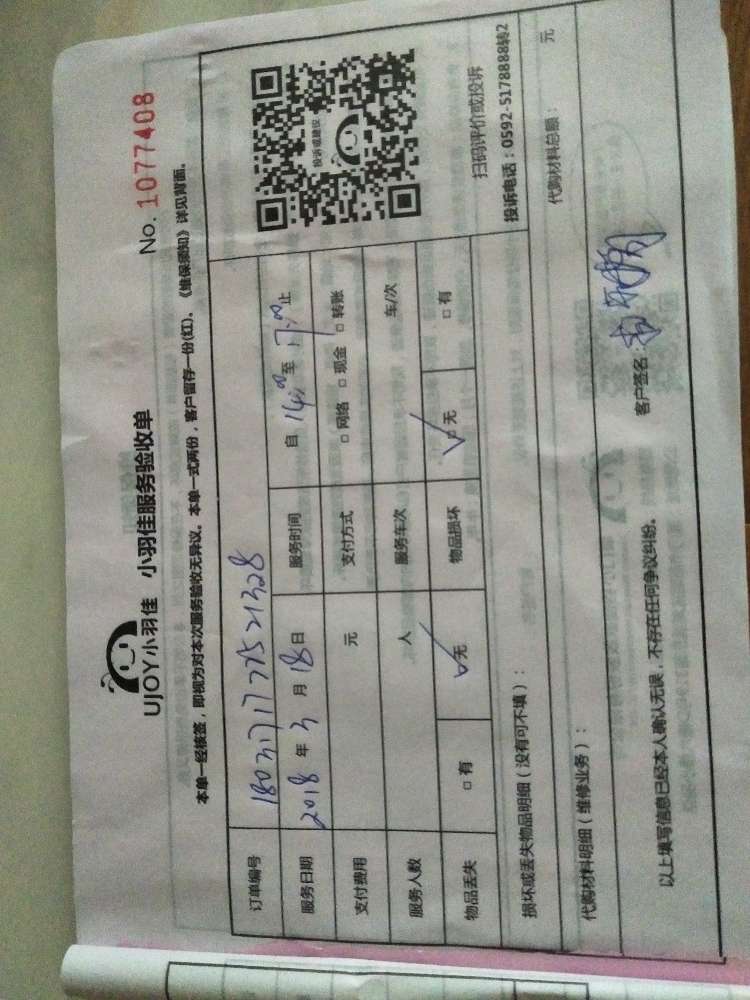 UJOY小羽佳 小羽佳服务验收单
No. 1077408
本单一经核签，即视为对本次服务验收无异议。本单一式两份，客户留存一份(红)。《维保须知》详见背面。
订单编号 18031717752 21328
服务日期 2018 年 3 月 18 日 服务时间 自 14:00 至 17:00 止
支付费用 元 支付方式 □ 网络 □ 现金 □ 转账
服务人数 人 服务车次 车/次
物品丢失 □ 有 ☑ 无 物品损坏 ☑ 无 □ 有
投诉或建议
扫码评价或投诉
投诉电话：0592-5178888转2
损坏或丢失物品明细（没有可不填）：
代购材料明细（维修业务）： 代购材料总额： 元
以上填写信息已经本人确认无误，不存在任何争议纠纷。
客户签名：